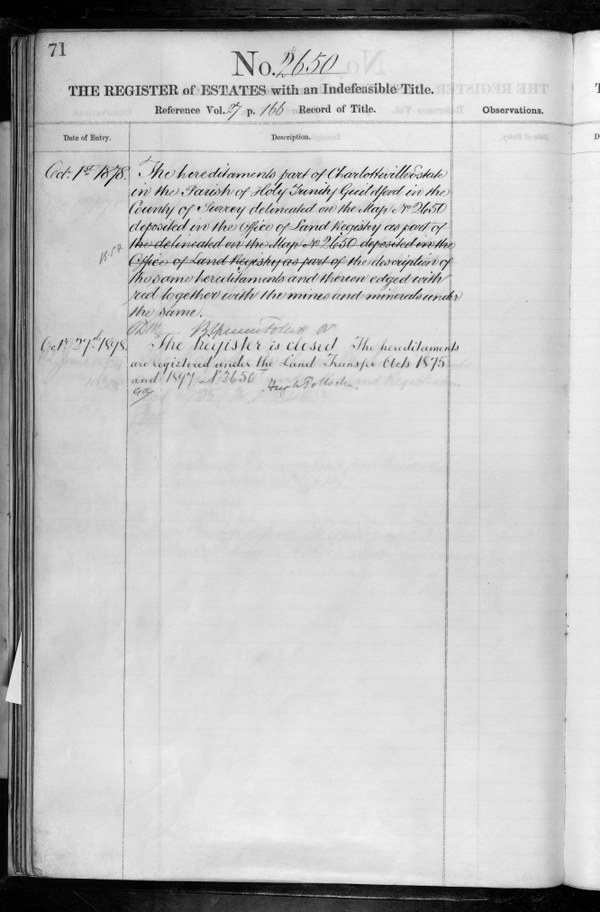 71
No. 2650
THE REGISTER of ESTATES with an Indefeasible Title.
Reference Vol. 7 p. 166 Record of Title.
Observations.
Date of Entry.
Description.
Oct. 1st 1878.
The hereditaments part of Charlotteville Estate
in the Parish of Holy Trinity Guildford in the
County of Surrey delineated on the Map No 2650
deposited in the Office of Land Registry as part of
the delineated on the Map No 2650 deposited in the
Office of Land Registry as part of the description of
the same hereditaments and thereon edged with
red together with the mines and minerals under
the same.
Octr. 27th 1898.
The Register is closed The hereditaments
are registered under the Land Transfer Acts 1875
and 1897 No 2650